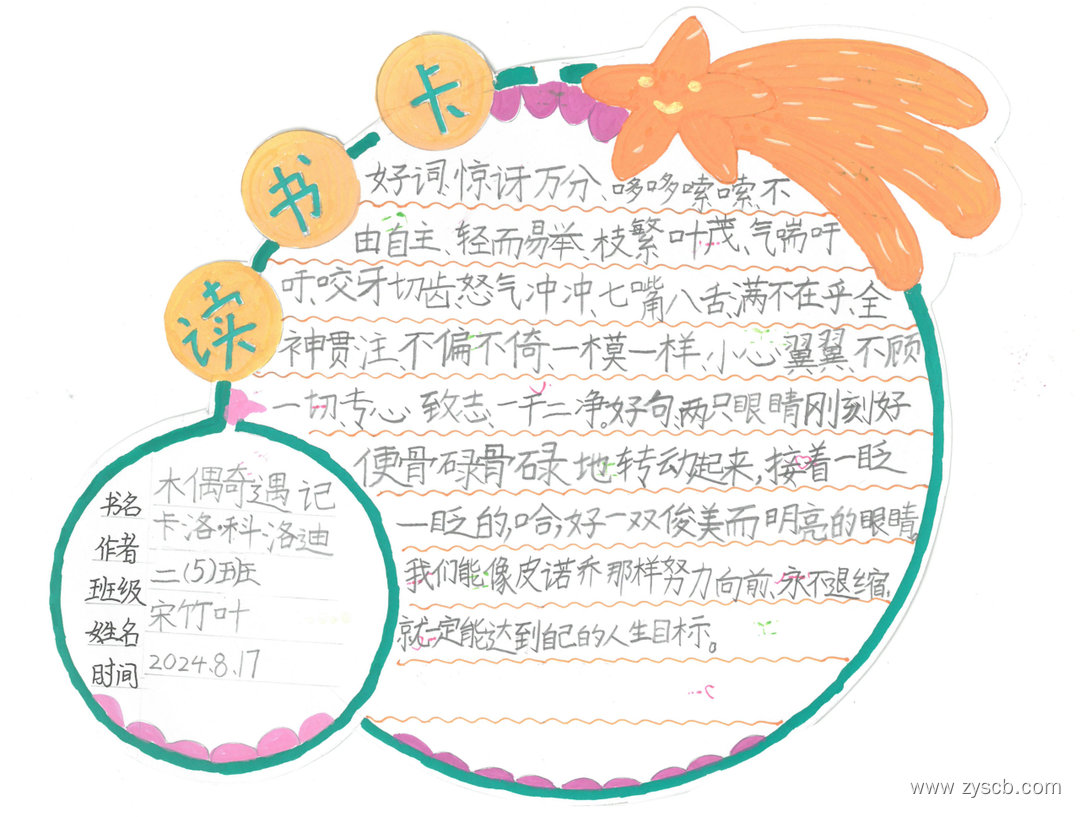 读书卡
好词、惊讶万分、哆哆嗦嗦、不
由自主、轻而易举、枝繁叶茂、气喘吁
吁、咬牙切齿、怒气冲冲、七嘴八舌、满不在乎、全
神贯注、不偏不倚、一模一样、小心翼翼、不顾
一切、专心致志、一干二净。好句、两只眼睛刚刻好
便骨碌骨碌地转动起来,接着一眨
一眨的,哈,好一双俊美而明亮的眼睛。
我们能像皮诺乔那样努力向前、永不退缩,
就一定能达到自己的人生目标。
书名 木偶奇遇记
作者 卡洛·科洛迪
班级 二(5)班
姓名 宋竹叶
时间 2024.8.17
www.zyscb.com